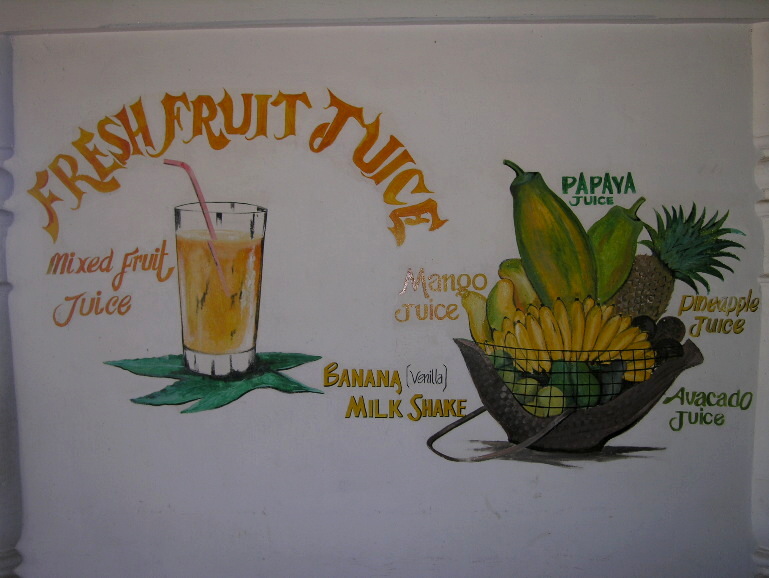 FRESH FRUIT JUICE
Mixed Fruit
Juice
PAPAYA
JUICE
Mango
Juice
Pineapple
Juice
BANANA (Venilla)
MILK SHAKE
Avacado
Juice